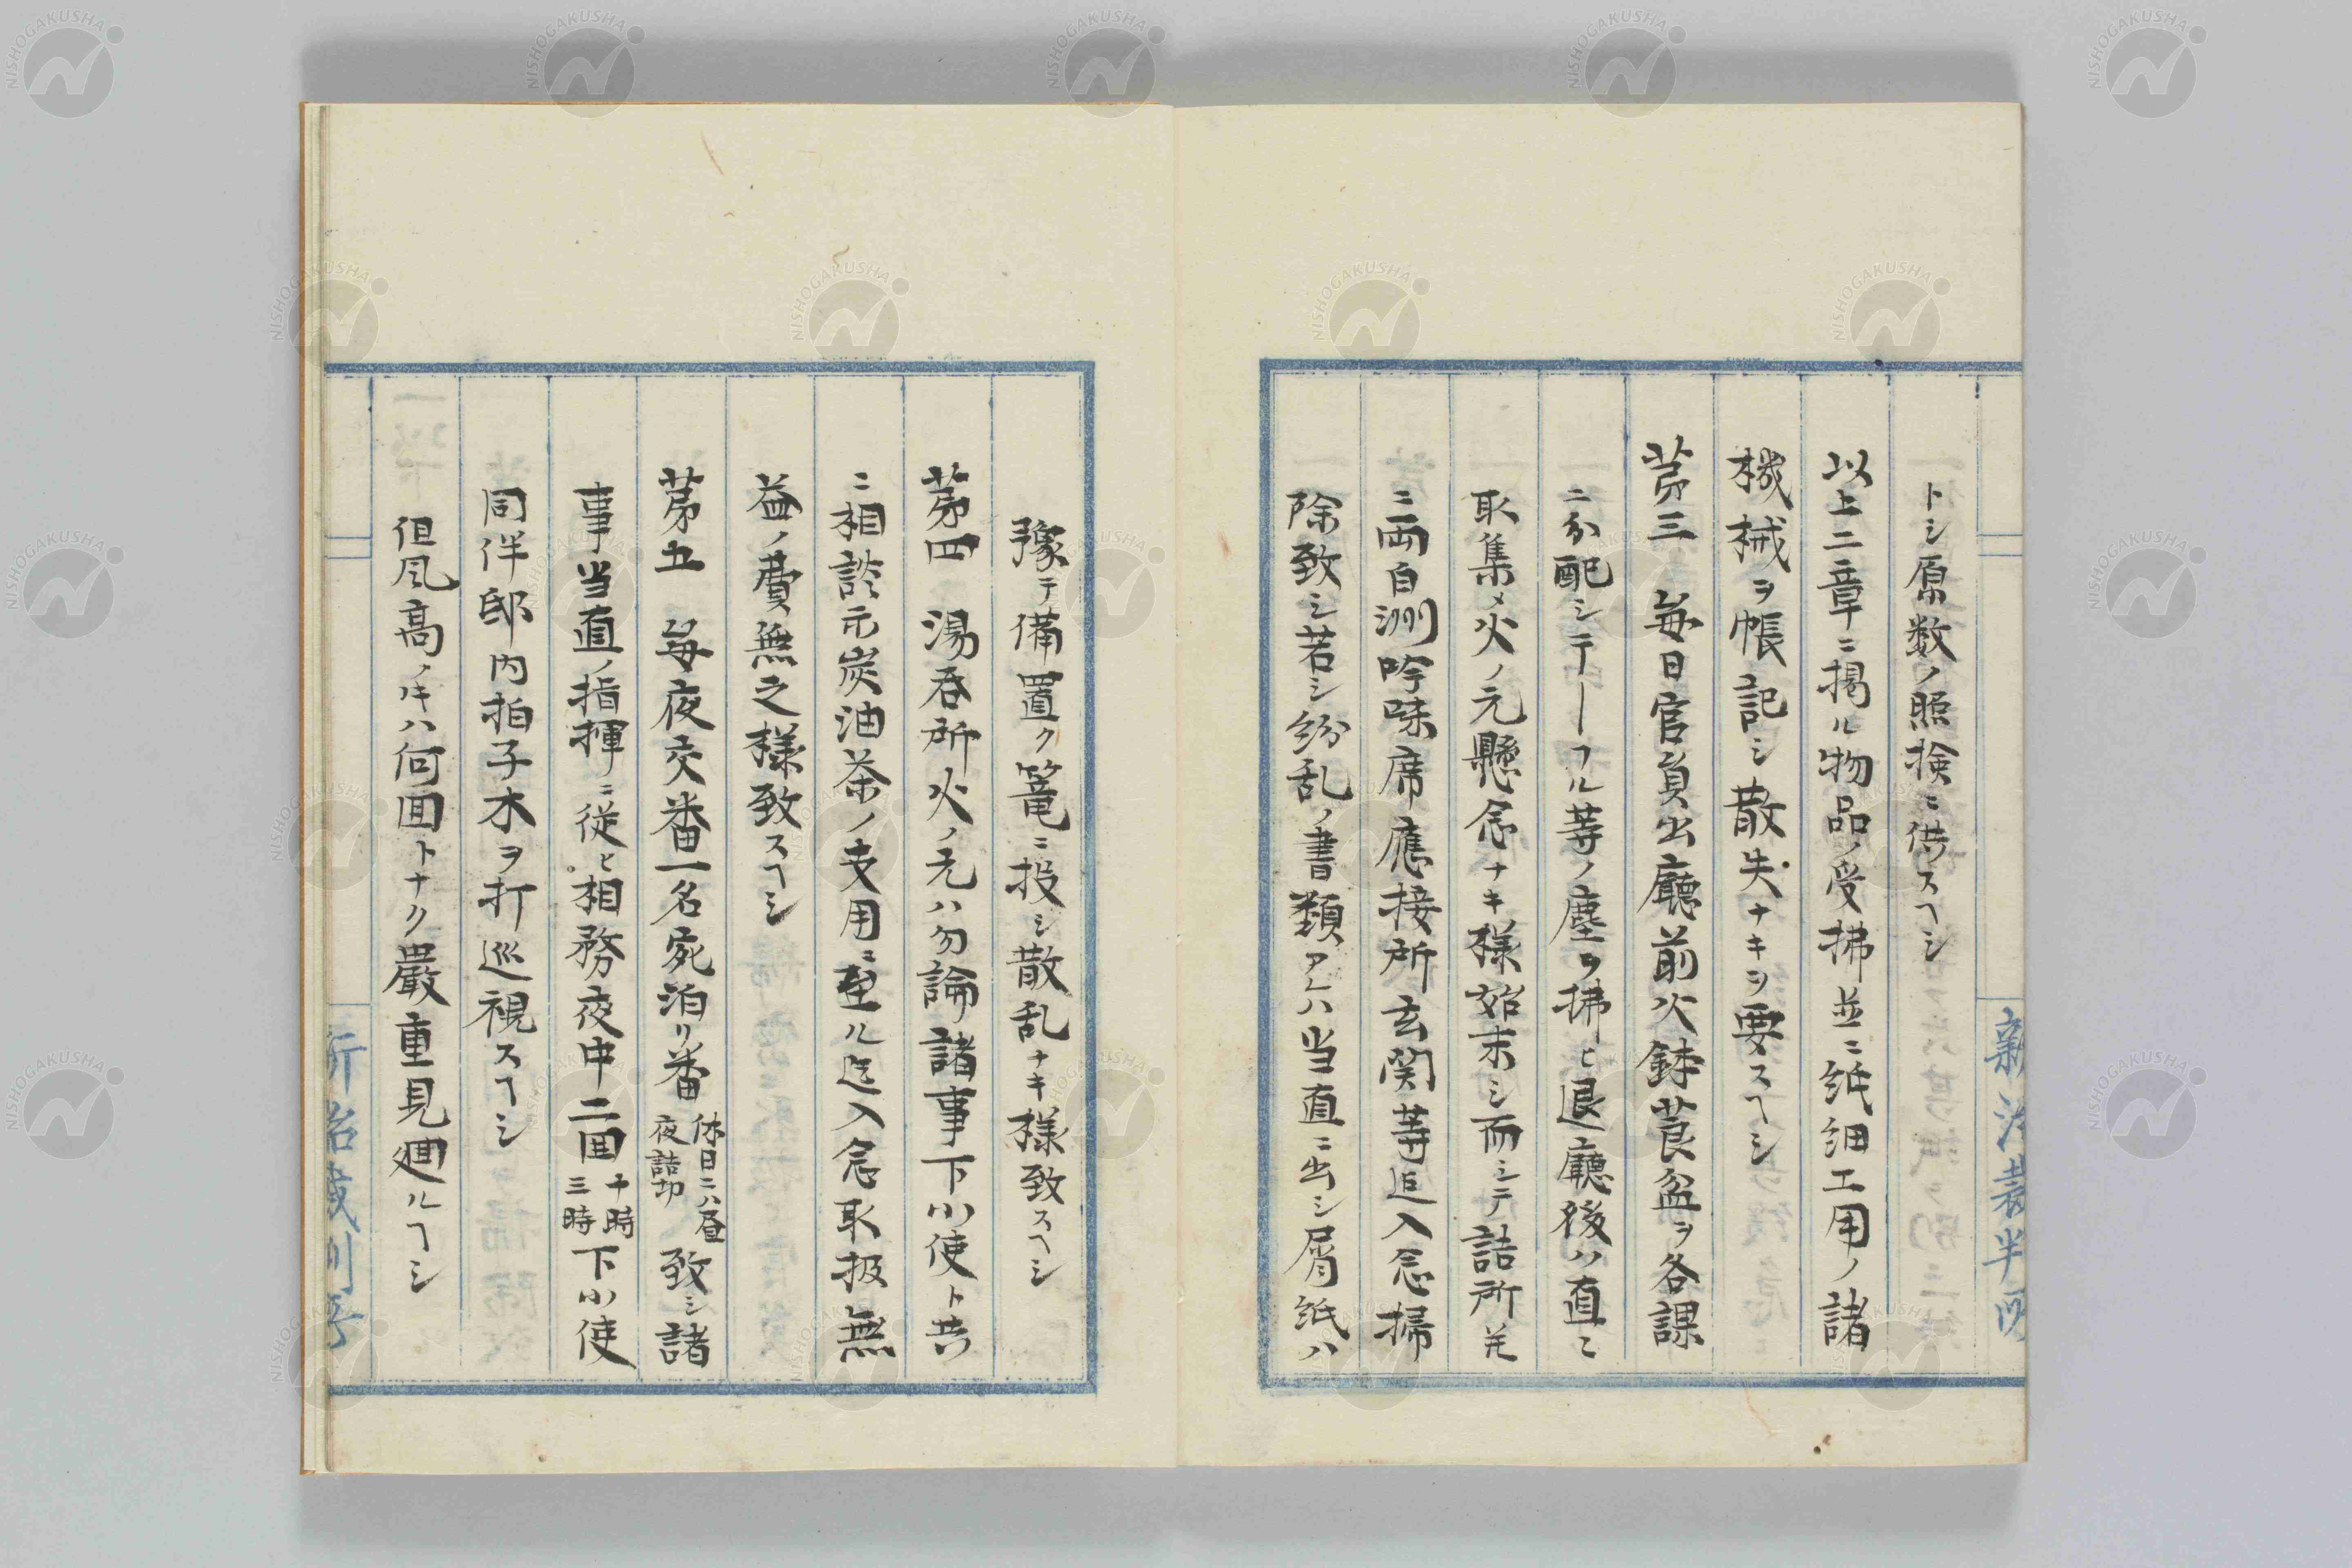 トシ原数ノ照検ニ供スヘシ
以上二章ニ掲ル物品ノ受拂並ニ紙細工用ノ諸
機械ヲ帳記シ散失ナキヲ要スヘシ
苐三 毎日官負出廳前火鉢莨盆ヲ各課
ニ分配シテーフル等ノ塵ヲ拂ヒ退廳後ハ直ニ
取集メ火ノ元懸念ナキ様始末シ而シテ詰所並
ニ両白洲吟味席應接所玄関等迠入念掃
除致シ若シ紛乱ノ書類アレハ当直ニ出シ屑紙ハ
豫テ備置ク篭ニ投シ散乱ナキ様致スヘシ
苐四 湯呑所火ノ元ハ勿論諸事下小使ト共
ニ相談示炭油茶ノ支用ニ至ル迄入念取扱無
益ノ費無之様致スヘシ
苐五 毎夜交番一名宛泊リ番
休日ニハ昼
夜詰切
致シ諸
事当直ノ指揮ニ従ヒ相務夜中二囬
十時
三時
下小使
同伴邸内拍子木ヲ打巡視スヘシ
但風高ノ𪜈ハ何囬トナク嚴重見廻ルヘシ
新治裁判所
NISHOGAKUSHA